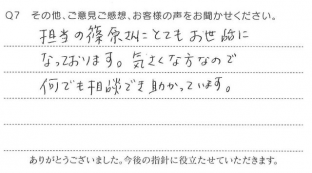 Q7 その他、ご意見ご感想、お客様の声をお聞かせください。
担当の篠原さんにとてもお世話に
なっております。気さくな方なので
何でも相談でき助かっています。
ありがとうございました。今後の指針に役立たせていただきます。